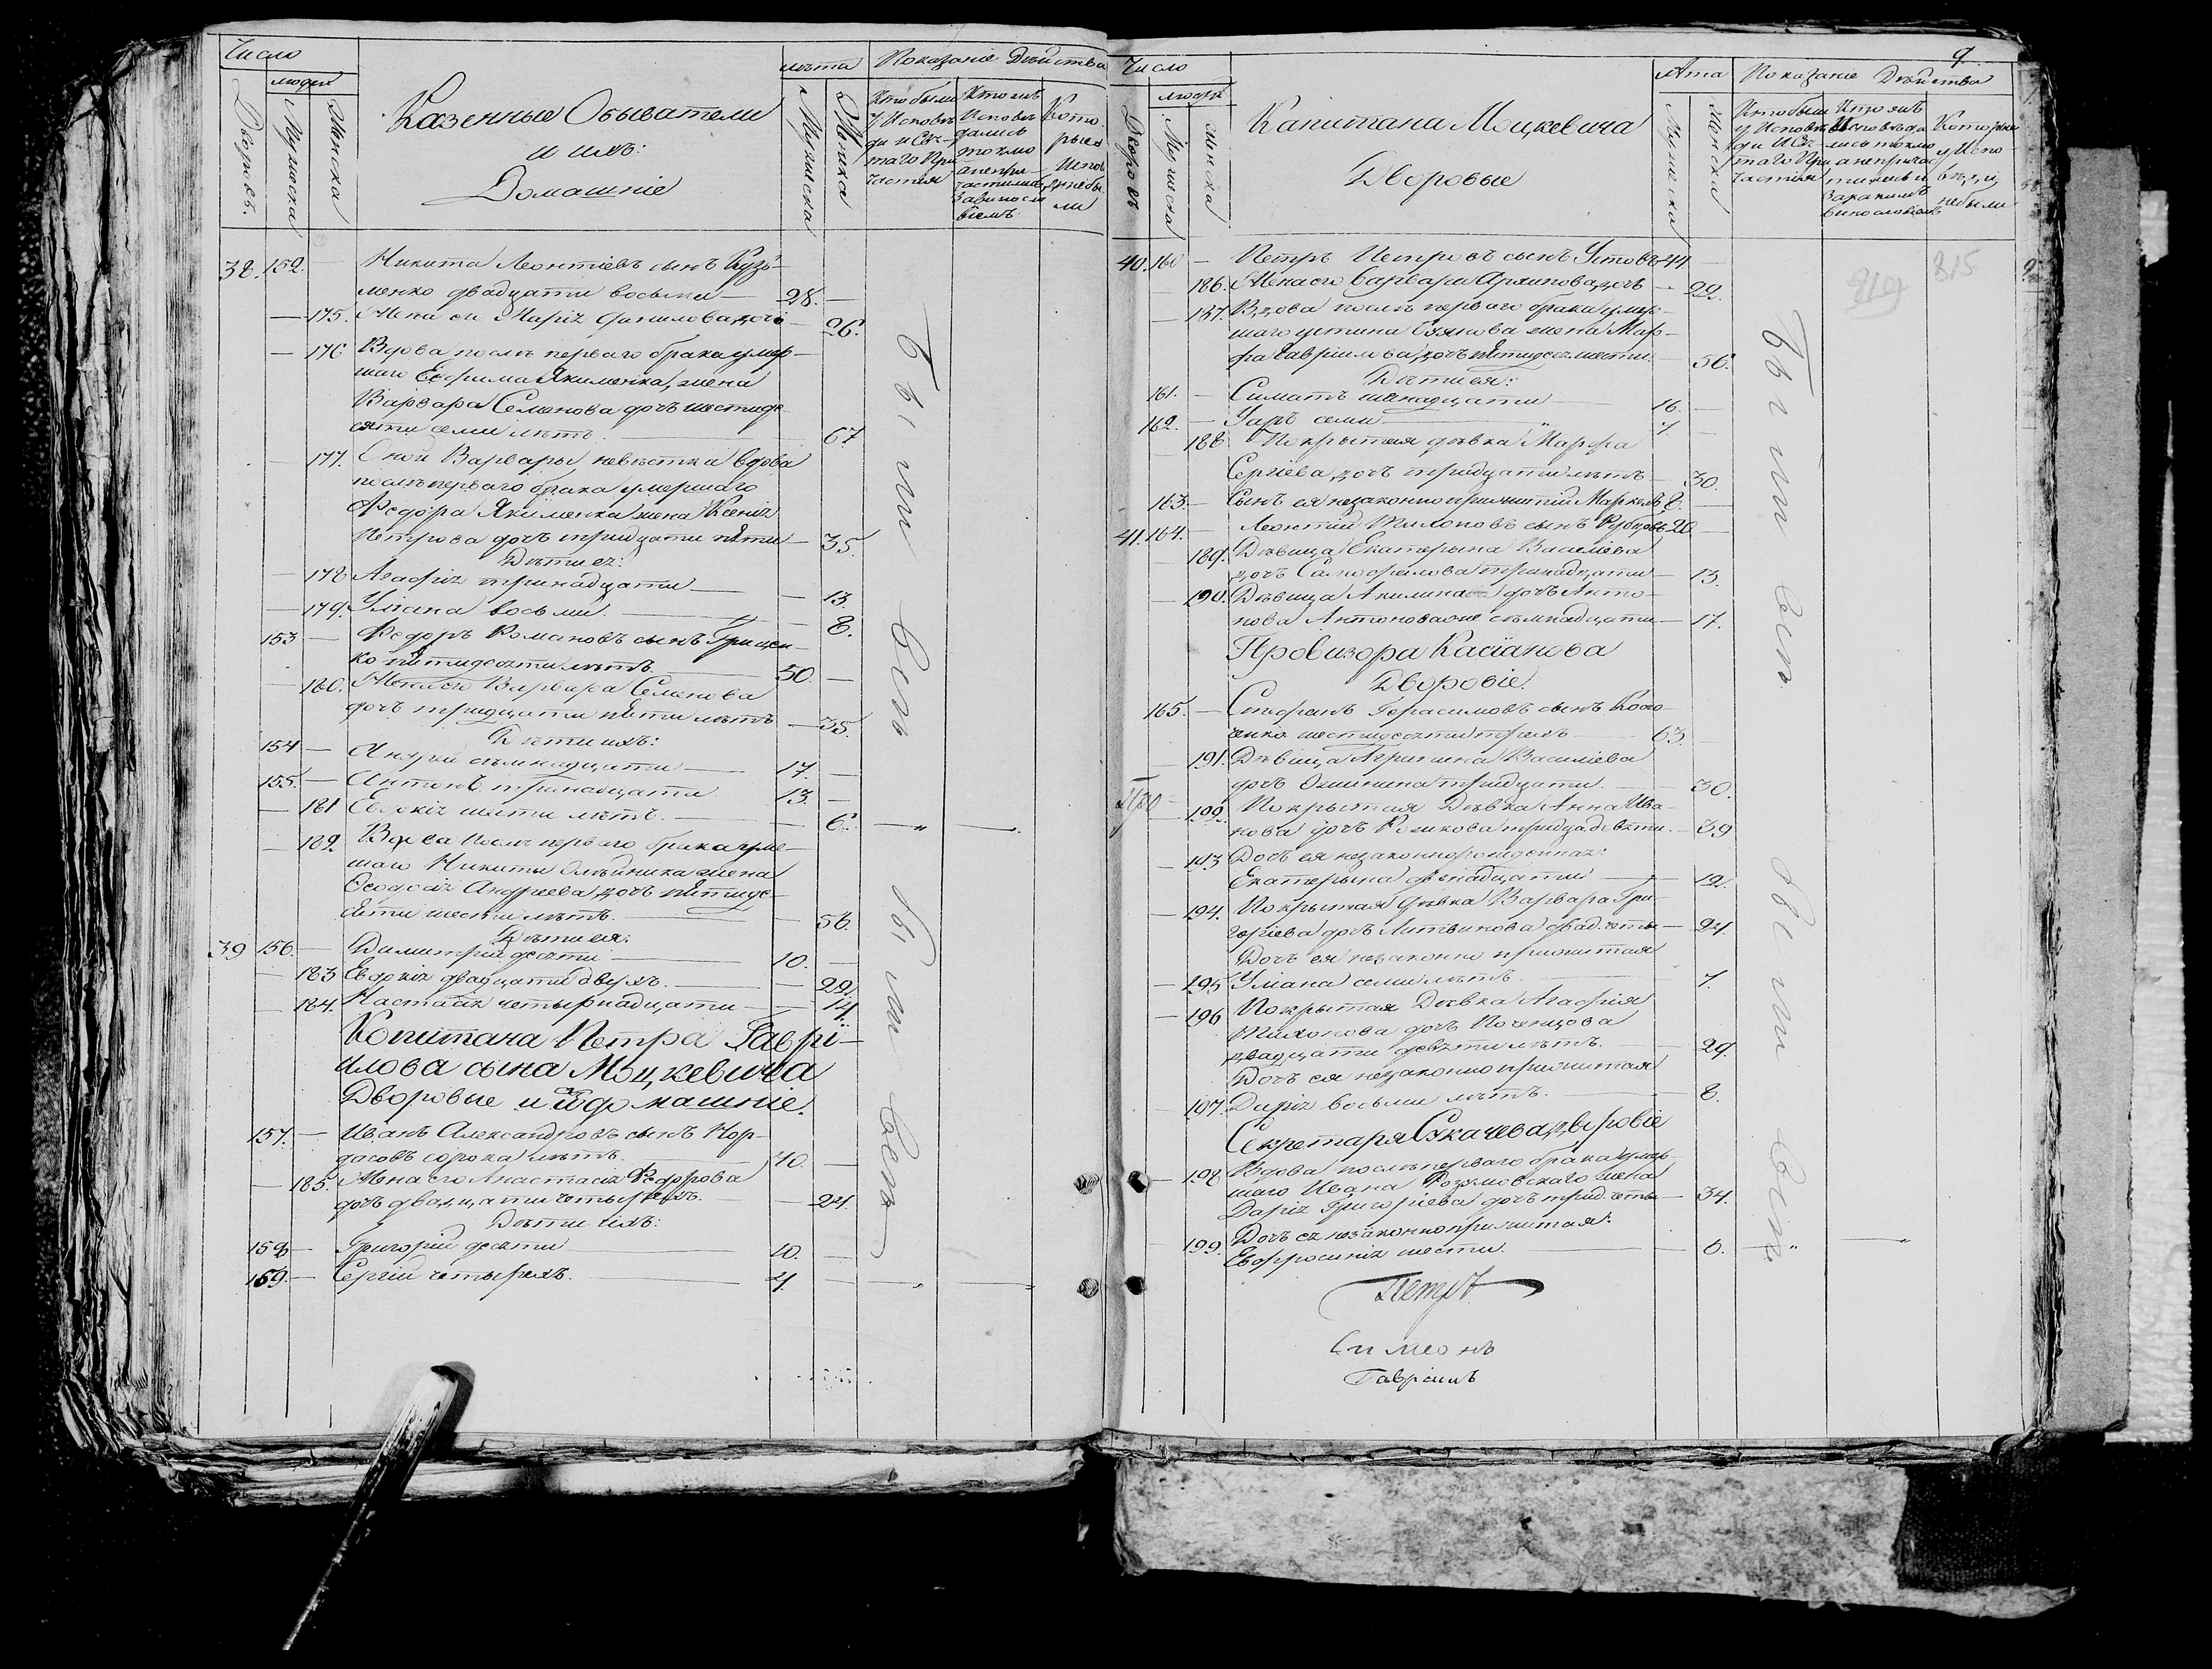 Число
людей
Дворовъ.
Мужеска
Женска
Казенные Обыватели
и ихъ:
Домашніе
лѣта
Мужеска
Женска
Показаніе Дѣйства
Кто были
у Исповѣ
ди и Свя
таго При
частія
Кто изъ
Исповѣ
дались
токмо
а непри
частились
За винос
ловіемъ
Кото
рые у
Испов
ѣди не бы
ли
38. 152. — Никита Леонтіевъ сынъ Кузь-
менко двадцати восьми — 28. —
— 175. Жена ег Марія Данилова дочь — 26.
— 176 Вдова послѣ перваго брака умер-
шаго Ефрима Якименка, жена
Варвара Семенова дочь шестиде
сяти семи лѣтъ. — 67
— 177. Сной Варвары невѣстка вдова
послѣ перваго брака умершаго
Федора Якименка жена Ксенія
Петрова дочь тридцати пяти — 35.
Дѣти ея:
— 178 Агафія тринадцати — 13.
— 179. Уліана восьми — 8.
153 — Федоръ Романовъ сынъ Грицен-
ко пятидесяти лѣтъ. — 50. —
— 180. Жена его Варвара Семенова
дочь тридцати пяти лѣтъ — 35.
Дѣти ихъ:
154 — Андрей семнадцати — 17. —
155. — Антонъ тринадцати 13. —
— 181 Евдокія шести лѣтъ. — 6.
— 182. Вдова послѣ перваго брака уме-
шаго Никиты Олѣйника жена
Феодосія Андреева дочь пятиде-
сяти шести лѣтъ. — 56.
Дѣти ея:
39 156. — Димитрій десяти — 10. —
— 183 Евдокія двадцати двухъ. — 22.
— 184. Настасія четырнадцати — 14.
Копитана Петра Гаврі-
илова сына Моцкевича
Дворовые и его домашніе.
157. — Иванъ Александровъ сынъ Кор-
дасовъ сорока лѣтъ. 40. —
— 185. Жена его Анастасія Федорова
дочь двадцати четырехъ. — 24.
Дѣти ихъ:
158 — Григорій десяти 10. —
159. — Сергій четырехъ. 4. —
Были вси
Были вси
9
Число
людей
Дворовъ
Мужеска
Женска
Капитана Моцкевича
Дворовые
Лѣта
Мужеска
Женска
Показаніе Дѣйства
Кто были
у Исповѣ
ди и Свя
таго При
частія
Кто изъ
Исповѣда
лись токмо
а непричас
тились и
За какимъ
винословіемъ
Которые
у Испо-
вѣди
не были
819 815
40. 160 — Петръ Петровъ сынъ Устовъ 44 —
186. Жена его Варвара дочь — 29.
187. Вдова послѣ перваго брака умер-
шаго жена Мар-
фа Гавріилова дочь пятидесяти шести. — 56.
Дѣти ея:
161. — шенадцати — 16. —
162. — Уаръ семи — 7. —
188 Покрытая дѣвка Марфа
Сергіева дочь тридцати лѣтъ — 30.
163. — Сынъ ея незаконно прижитій Маркелъ 8. —
41. 164. — Леонтій Тихоновъ сынъ Рубцовъ 20 —
189. Дѣвица Екатерина Василіева
дочь Самофалова тринадцати — 13.
190. Дѣвица Акилина дочь Анто-
нова семнадцати — 17.
Провизора Касіанова
Дворовіе.
165. — Стефанъ Герасимовъ сынъ
ченко шестидесяти трехъ 63. —
191. Дѣвица Агрипина Василіева
дочь тридцати. — 30.
— 192. Покрытая Дѣвка Анна Ива-
нова дочь тридца девяти. — 39
— 193 Дочь ея незаконнорожденная:
Екатерина двенадцати — 12.
— 194. Покрытая дѣвка Варвара Гри-
горіева дочь Литвинова двад. четы — 24.
Дочь ея незаконно прижитая
— 195 Уліана семи лѣтъ. — 7.
— 196 Покрытая Дѣвка Агафія
Тихонова дочь
двадцати девяти лѣтъ. — 29.
Дочь ея незаконно прижитая
— 197. Дарія восьми лѣтъ. — 8.
Секретаря Скачева дворовіе
— 198 Вдова послѣ перваго брака умер-
шаго Ивана Розумовскаго жена
Дарія Григоріева дочь трид. четы — 34.
— 199. Дочь ея незаконно прижитая:
Евфросинія шести. — 6.
Были вси
Были вси
Петръ
Симеонъ
Гавріилъ